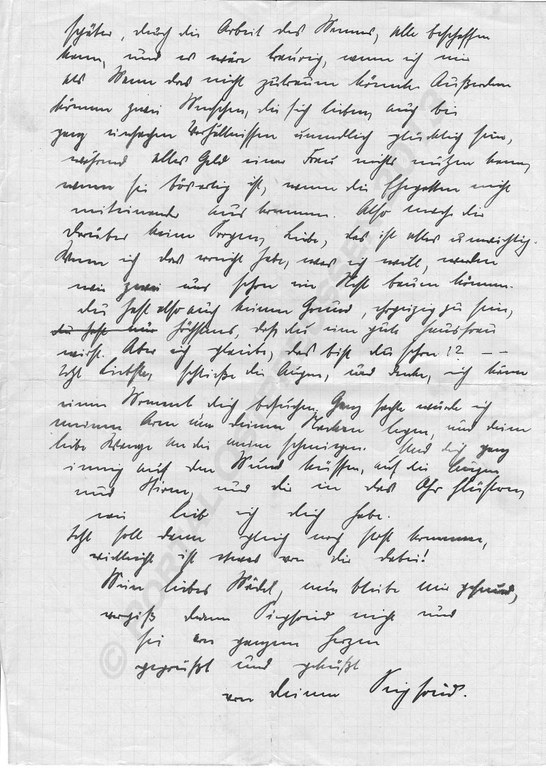 später, durch die Arbeit des Mannes, alle beschaffen
kann, und es wäre traurig, wenn ich mir
als Mann das nicht zutrauen könnte. Außerdem
können zwei Menschen, die sich lieben, auch bei
ganz einfachen Verhältnissen unendlich glücklich sein,
während alles Geld einer Frau nichts nützen kann,
wenn sie bösartig ist, wenn die Ehegatten nicht
miteinander auskommen. Also mach dir
darüber keine Sorgen, Liebe, das ist alles unwichtig.
Wenn ich das erreicht habe, was ich will, werden
wir zwei uns schon ein Nest bauen können.
Du hast also auch keinen Grund, ehrgeizig zu sein,
du hast nur höchstens, daß du eine gute Hausfrau
wirst. Aber ich glaube, das bist du schon!? --
Jetzt Liebste, schließe die Augen, und denke, ich käme
einen Moment dich besuchen. Ganz sachte würde ich
meinen Arm um deinen Nacken legen, und deine
liebe Wange an die meine schmiegen. Und dich ganz
innig auf den Mund küssen, auf die Augen
und Stirn, und dir in das Ohr flüstern,
wie lieb ich dich habe.
Jetzt soll dann gleich noch Post kommen,
vielleicht ist etwas von dir dabei!
Mein liebes Mädel, nun bleibe mir gesund,
vergiß deinen Siegfried nicht und
sei von ganzem Herzen
gegrüßt und geküßt
von deinem Siegfried.
© PORTAL